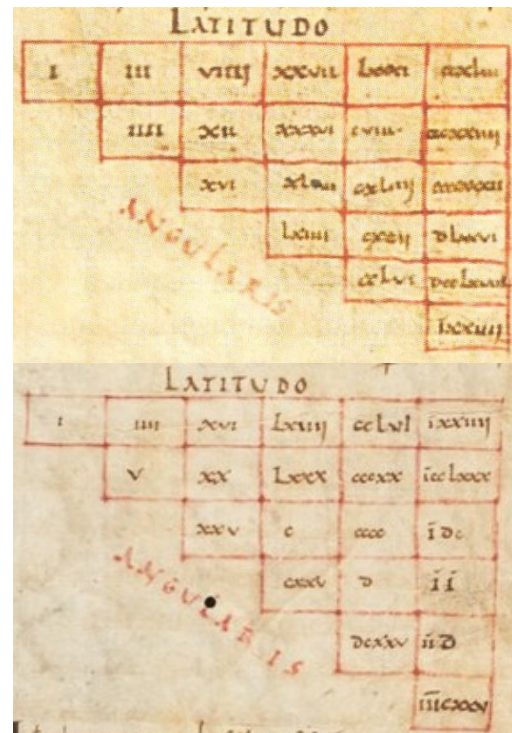 LATITUDO
I III VIIII XXVII LXXXI CCXLIII
IIII XII XXXVI CVIII CCCXXIIII
XVI CXLIIII
ANGULARIS
LXIIII CXCII DLXXVI
CCLVI DCCLXVIII
ĪXXIIII
LATITUDO
I IIII XVI LXIIII CCLVI ĪXXIIII
V XX LXXX CCCXX ĪCCLXXX
XXV C CCCC ĪDC
ANGULARIS
CXXV D ĪĪ
DCXXV ĪĪD
ĪĪĪCXXV